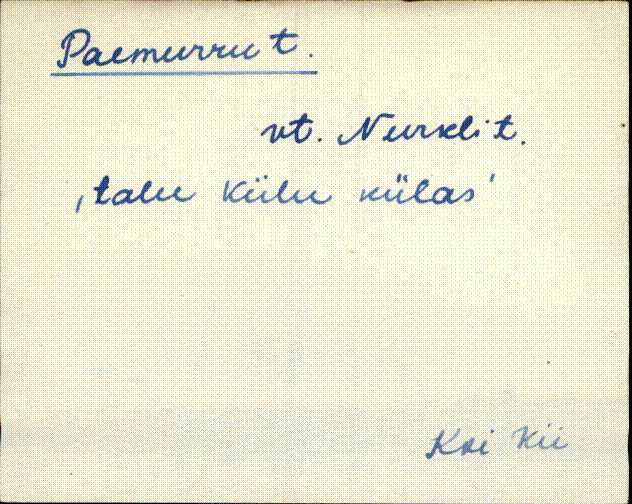 Paemurru t.
vt. Nurkli t.
'talu Kiilu külas'
Koi Kii